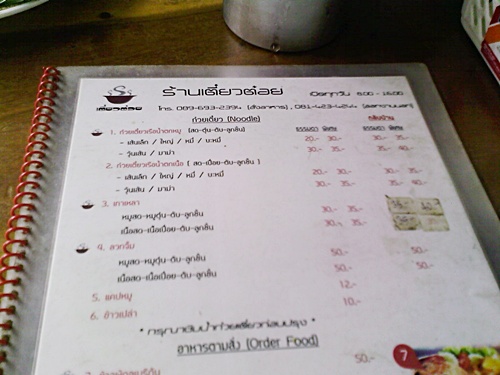 ร้านเตี๋ยวต่อย เปิดทุกวัน 8:00 - 16:00
เตี๋ยวต่อย
โทร. 089-693-2394 (สั่งอาหาร), 081-423-4244
ก๋วยเตี๋ยว (Noodle) กลับบ้าน
1. ก๋วยเตี๋ยวเรือน้ำตกหมู (สด-ตุ๋น-ตับ-ลูกชิ้น) ธรรมดา พิเศษ ธรรมดา พิเศษ
- เส้นเล็ก / ใหญ่ / หมี่ / บะหมี่ 20.- 30.- 30.- 35.-
- วุ้นเส้น / มาม่า 30.- 35.- 35.- 40.-
2. ก๋วยเตี๋ยวเรือน้ำตกเนื้อ ( สด-เปื่อย-ตับ-ลูกชิ้น )
- เส้นเล็ก / ใหญ่ / หมี่ / บะหมี่ 20.- 30.- 30.- 35.-
- วุ้นเส้น / มาม่า 30.- 35.- 35.- 40.-
3. เกาเหลา
หมูสด-หมูตุ๋น-ตับ-ลูกชิ้น 30.- 35.-
เนื้อสด-เนื้อเปื่อย-ตับ-ลูกชิ้น 30.- 35.-
4. ลวกจิ้ม
หมูสด-หมูตุ๋น-ตับ-ลูกชิ้น 50.- 50.-
เนื้อสด-เนื้อเปื่อย-ตับ-ลูกชิ้น 50.- 50.-
5. แคปหมู 12.-
6. ข้าวเปล่า 10.-
* กรุณาชิมน้ำก๋วยเตี๋ยวก่อนปรุง *
อาหารตามสั่ง (Order Food)
50.-
7